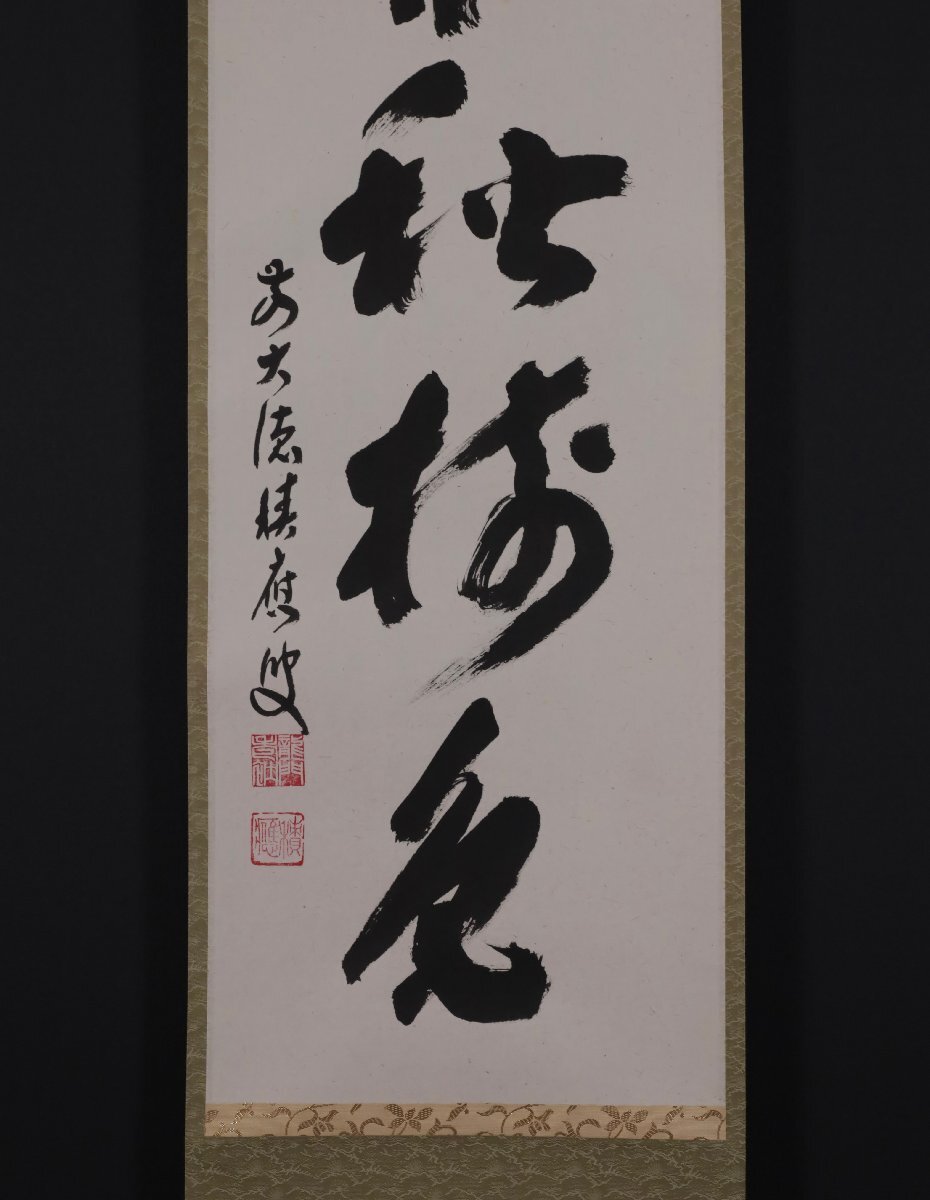 秋樹色
前大徳積應叟
積應